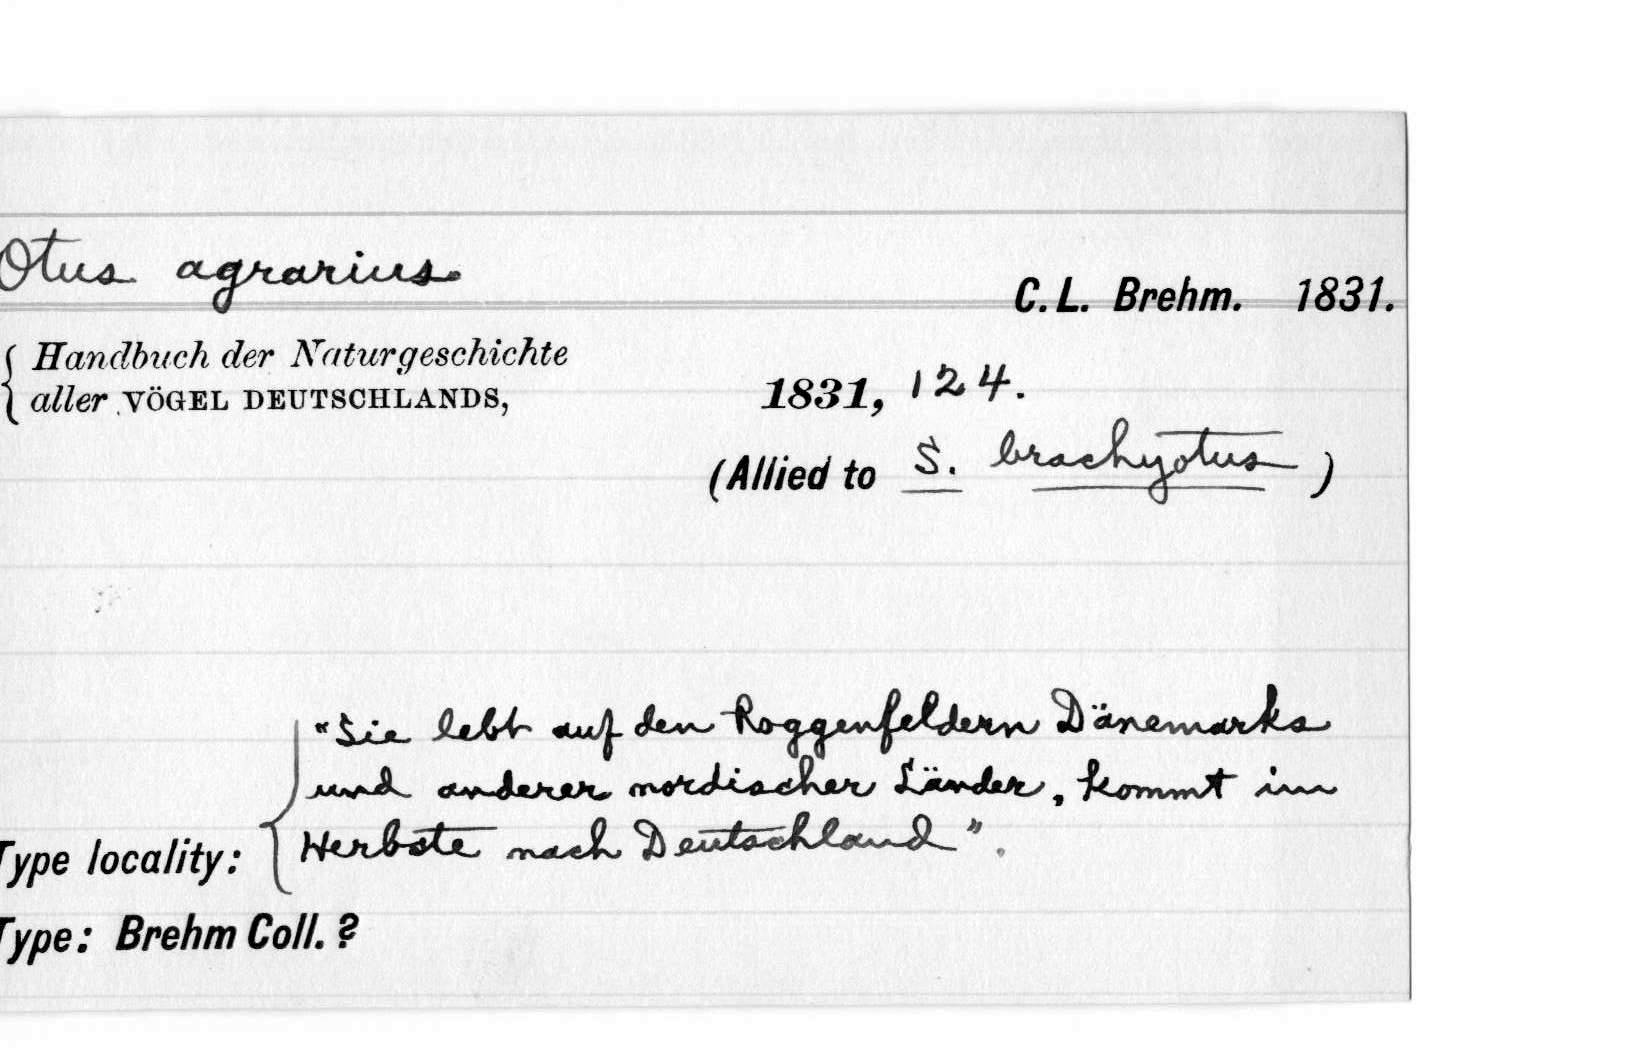 Otus agrarius
C. L. Brehm. 1831.
Handbuch der Naturgeschichte
aller VÖGEL DEUTSCHLANDS, 1831, 124.
(Allied to S. brachyotus)
"Sie lebt auf den Roggenfeldern Dänemarks
und anderer nordischer Länder, kommt im
Type locality: Herbste nach Deutschland".
Type: Brehm Coll. ?